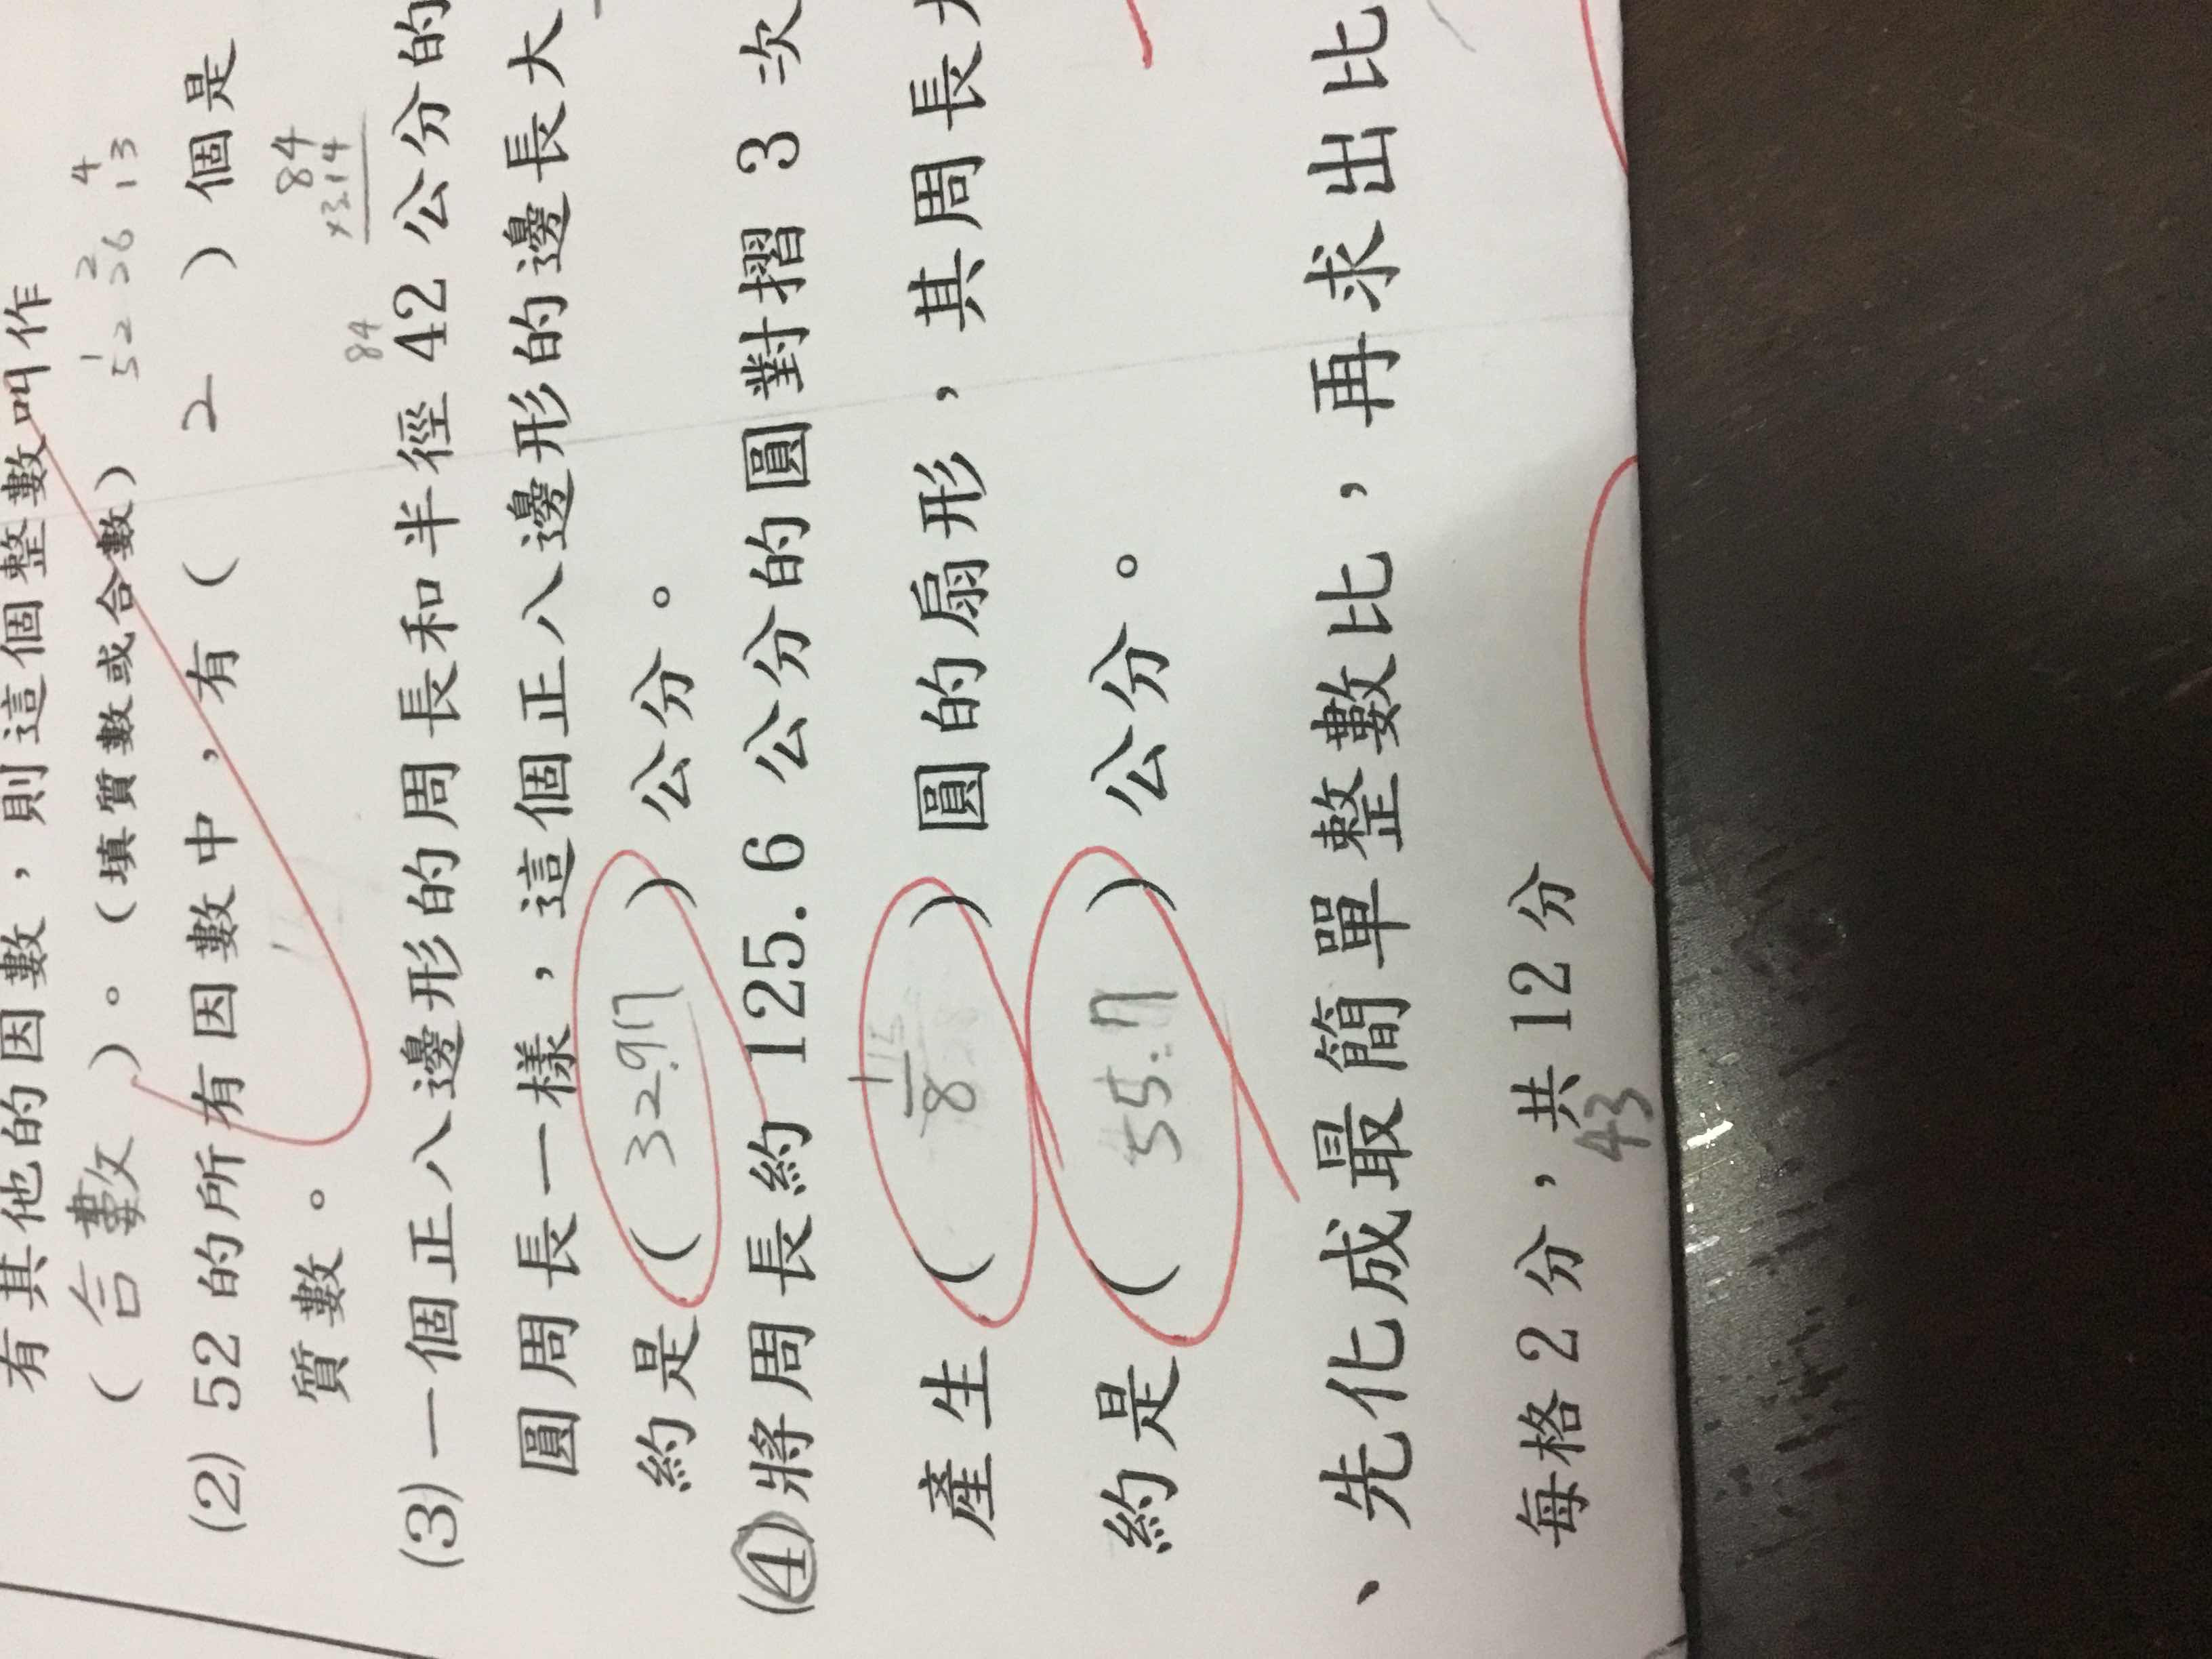 有其他的因數，則這個整數叫作
（合數）。（填質數或合數） 1 52 2 26 4 13
(2) 52 的所有因數中，有（ 2 ）個是
質數。
84
84
×3.14
(3) 一個正八邊形的周長和半徑 42 公分的
圓周長一樣，這個正八邊形的邊長大
約是（ 32.97 ）公分。
(4) 將周長約 125.6 公分的圓對摺 3 次
產生（ 1/8 ）圓的扇形，其周長大
約是（ 55.7 ）公分。
、先化成最簡單整數比，再求出比
每格 2 分，共 12 分
43